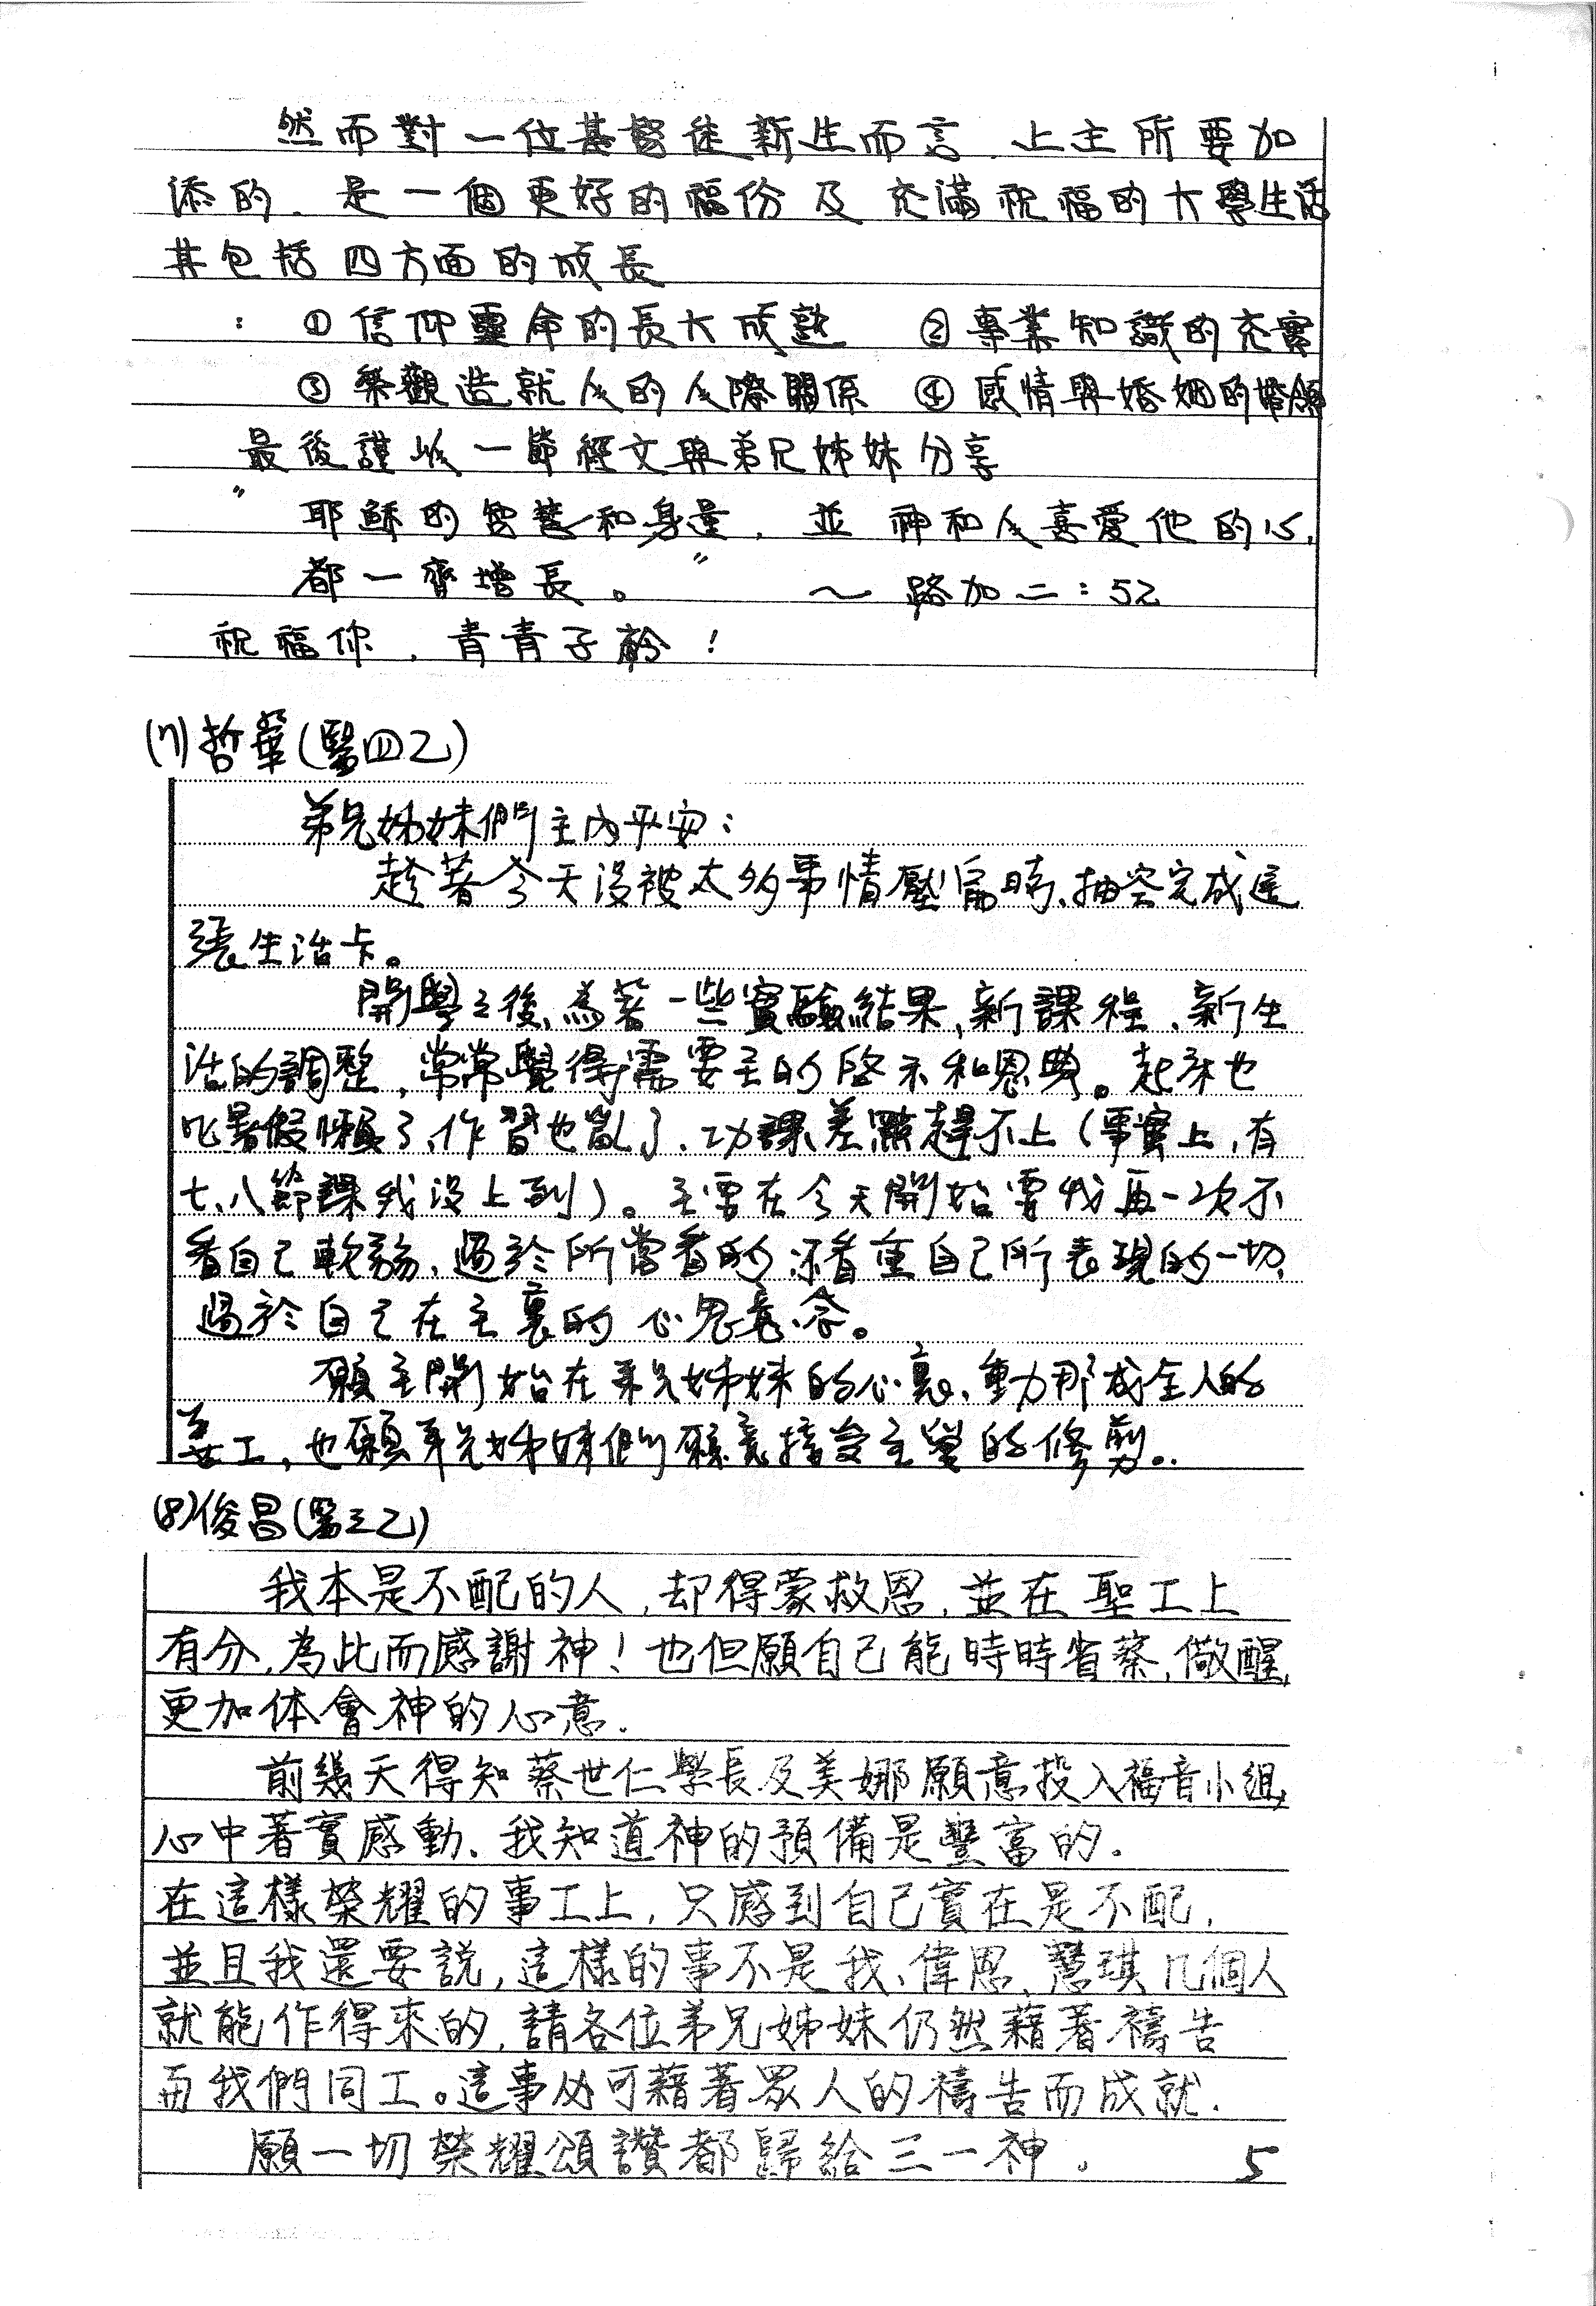 然而對一位基督徒新生而言、上主所要加
添的、是一個更好的福份及充滿祝福的大學生活
其包括四方面的成長
: ①信仰靈命的長大成熟 ②專業知識的充實
③樂觀造就人的人際關係 ④感情與婚姻的
最後謹以一節經文與弟兄姊妹分享
"耶穌的智慧和身量、並神和人喜愛他的心、
都一齊增長。" ～路加二:52
祝福你、青青子衿!
(7)哲華(醫四乙)
弟兄姊妹們主內平安:
趁著今天沒被太多事情壓傷時、抽空完成這
張生活卡。
開學之後、為著一些實驗結果、新課程、新生
活的調整、常常覺得需要主的啓示和恩典。起床也
比暑假懶了、作習也亂了、功課差點趕不上(事實上,有
七、八節課我沒上到)。主要在今天開始要我再一次不
看自己軟弱、過於所當看的、不看重自己所表現的一切、
過於自己在主裏的心思意念。
願主開始在弟兄姊妹的心裏、動那成全人的
善工,也願弟兄姊妹們願意接受主愛的修剪。
(8)俊昌(醫三乙)
我本是不配的人,却得蒙救恩,並在聖工上
有分,為此而感謝神!也但願自己能時時省察,儆醒,
更加体會神的心意.
前幾天得知蔡世仁學長及美娜願意投入福音小組,
心中著實感動、我知道神的預備是豐富的.
在這樣榮耀的事工上,只感到自己實在是不配,
並且我還要説,這樣的事不是我、偉恩、慧琪几個人
就能作得來的,請各位弟兄姊妹仍然藉著禱告
而我們同工。這事必可藉著眾人的禱告而成就.
願一切榮耀頌讚都歸給三一神.
5